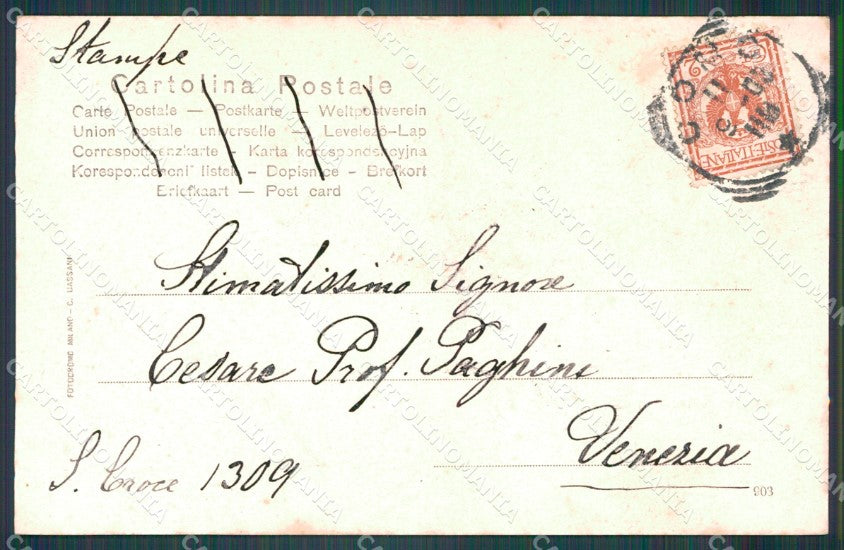 Stampe
Cartolina Postale
Carte Postale — Postkarte — Weltpostverein
Union postale universelle — Levelező-Lap
Correspondenzkarte — Karta korespondencyjna
Korespondenční listek — Dopisnice — Brefkort
Briefkaart — Post card
POSTE ITALIANE
Stimatissimo Signore
Cesare Prof. Paghini
Venezia
S. Croce 1309
FOTOCROMO MILANO - C. BASSANI
903
CARTOLINOMANIA